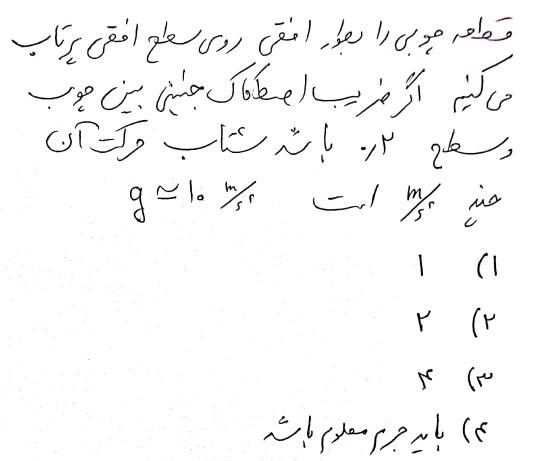 قطعه چوبی را بطور افقی روی سطح افقی پرتاب
می کنیم اگر ضریب اصطکاک جنبشی بین چوب
و سطح ۰٫۲ باشد شتاب حرکت آن
چند m/s² است g ≃ ۱۰ m/s²
۱) ۱
۲) ۲
۳) ۴
۴) باید جرم معلوم باشد